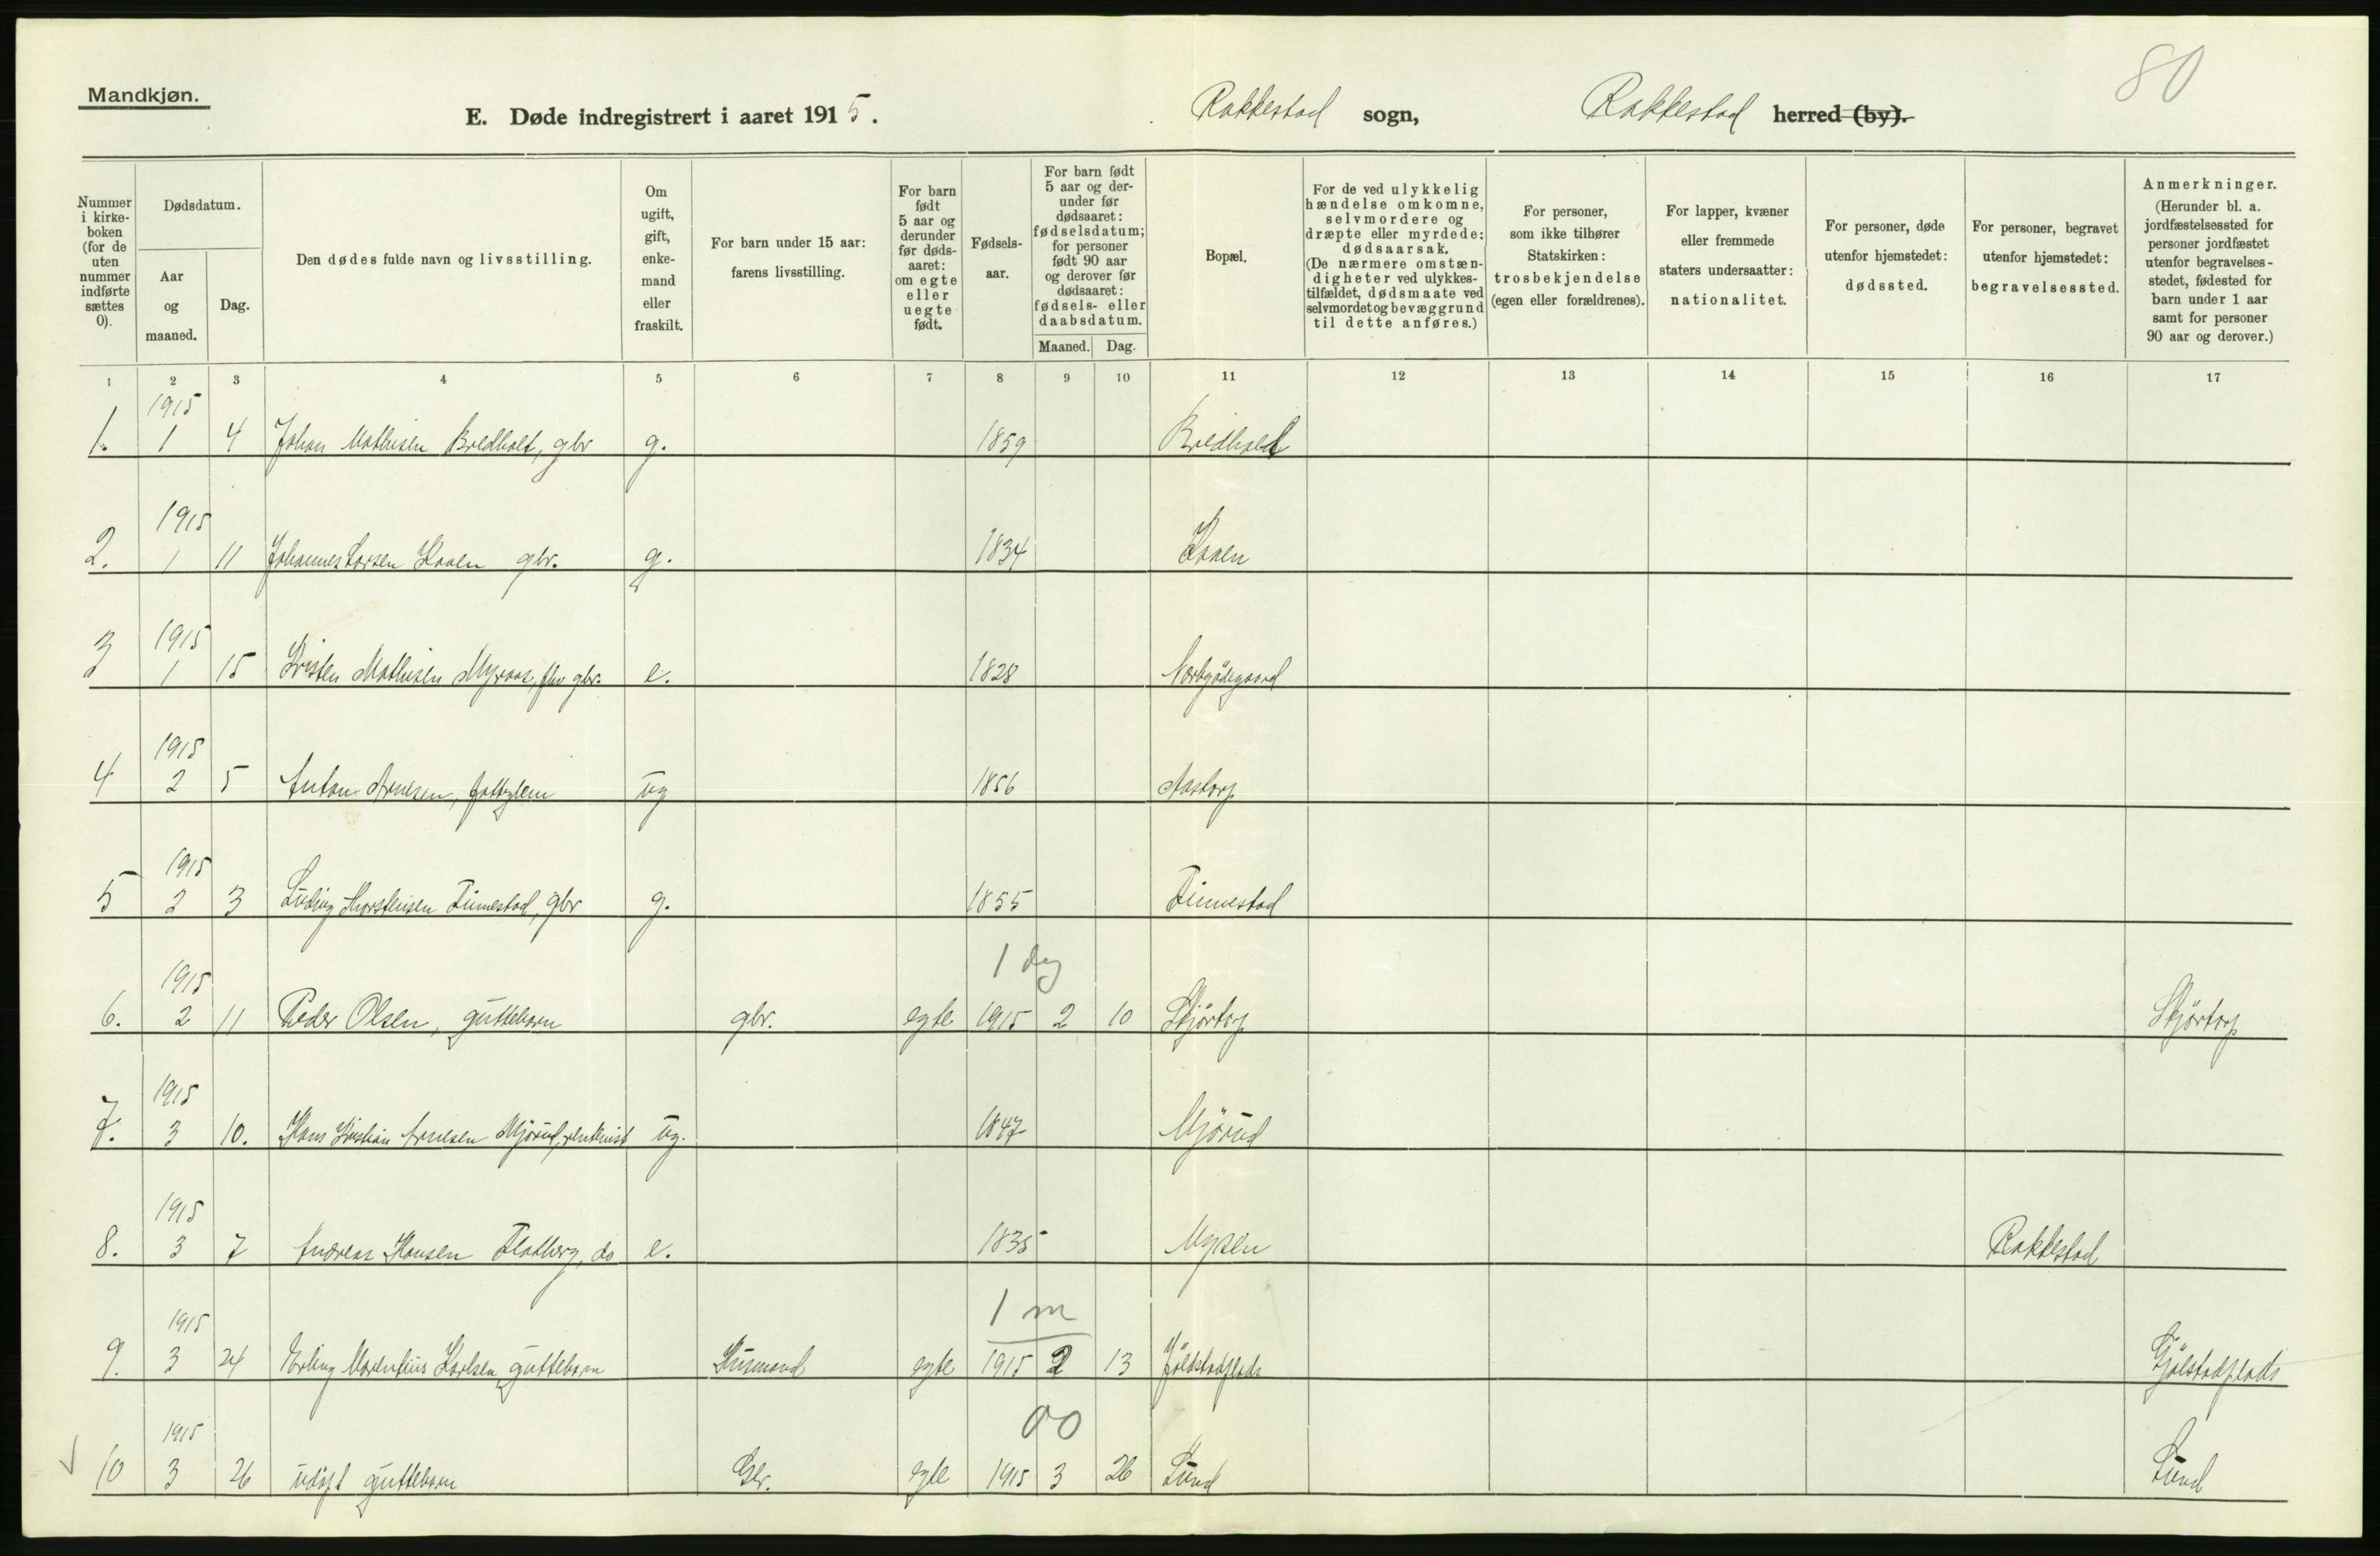 80
Mandkjøn.
E. Døde indregistrert i aaret 1915. Rakkestad sogn, Rakkestad herred (by).
Nummer i kirke- boken (for de uten nummer indførte sættes 0).
Dødsdatum.
Aar og maaned.
Dag.
Den dødes fulde navn og livsstilling.
Om ugift, gift, enke- mand eller fraskilt.
For barn under 15 aar: farens livsstilling.
For barn født 5 aar og derunder før døds- aaret: om egte eller uegte født.
Fødsels- aar.
For barn født 5 aar og der- under før dødsaaret: fødselsdatum; for personer født 90 aar og derover før dødsaaret: fødsels- eller daabsdatum.
Maaned. Dag.
Bopæl.
For de ved ulykkelig hændelse omkomne, selvmordere og dræpte eller myrdede: dødsaarsak. (De nærmere omstæn- digheter ved ulykkes- tilfældet, dødsmaate ved selvmordet og bevæggrund til dette anføres.)
For personer, som ikke tilhører Statskirken: trosbekjendelse (egen eller forældrenes).
For lapper, kvæner eller fremmede staters undersaatter: nationalitet.
For personer, døde utenfor hjemstedet: dødssted.
For personer, begravet utenfor hjemstedet: begravelsessted.
Anmerkninger. (Herunder bl. a. jordfæstelsessted for personer jordfæstet utenfor begravelses- stedet, fødested for barn under 1 aar samt for personer 90 aar og derover.)
1 2 3 4 5 6 7 8 9 10 11 12 13 14 15 16 17
1915
1. 1 4 Johan Mathisen Bredholt, gbr g. 1859 Bredholt
1915
2. 1 11 Johannes Larsen Kaaen gbr. g. 1834 Kaaen
1915
3 1 15 Kristen Mathisen Myraas, fhv gbr. e. 1828 Nordbyødegaard
1915
4 2 5 Anton Arnesen, fattiglem ug 1856 Aastorp
1915
5 2 3 Ludvig Thorstensen Finnestad, gbr g. 1855 Finnestad
1 dag
1915
6. 2 11 Peder Olsen, guttebarn gbr. egte 1915 2 10 Skjørtorp Skjørtorp
1915
7. 3 10. Hans Kristian Arnesen Mjørud, rentenist ug. 1847 Mjørud
1915
8. 3 7 Andreas Hansen Flatberg, do e. 1835 Mysen Rakkestad
1 m
1915
9. 3 24 Erling Karlsen, guttebarn Husmand egte 1915 2 13 Gjølstadplads Gjølstadplads
00
1915
10 3 26 udøpt guttebarn Gbr. egte 1915 3 26 Lund Lund